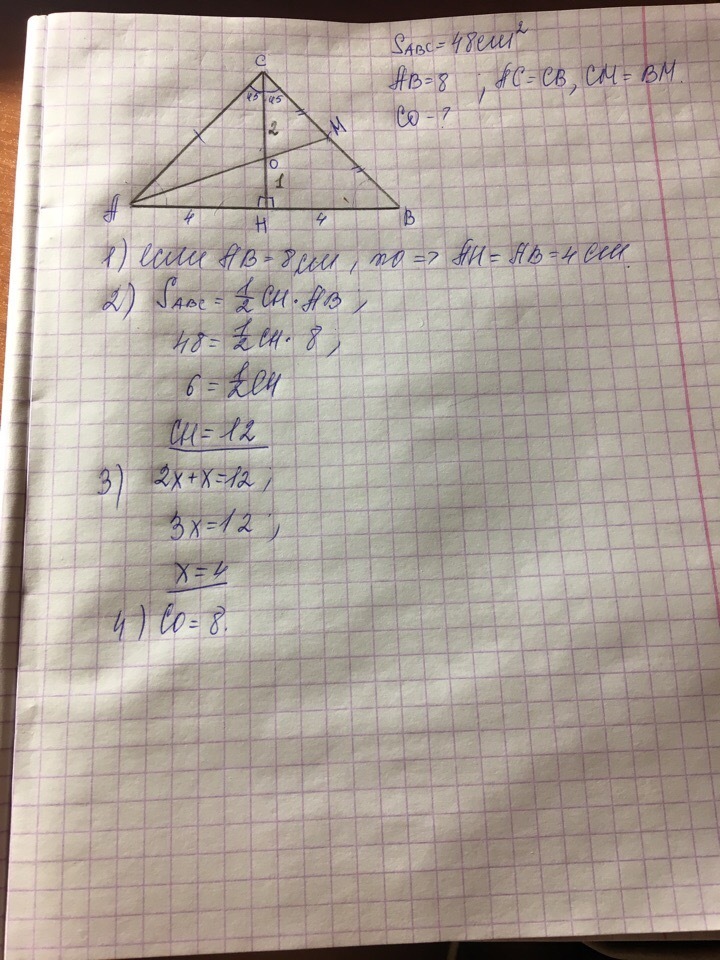 S_ABC = 48 см²
AB = 8 ; AC = CB, CM = BM.
CO - ?
C
45 45
2
M
O
1
A
4
H
4
B
1) если AB = 8 см, то => AH = AB = 4 см.
2) S_ABC = 1/2 CH · AB ;
48 = 1/2 CH · 8 ;
6 = 1/2 CH
CH = 12
3) 2x + x = 12 ;
3x = 12 ;
x = 4
4) CO = 8.